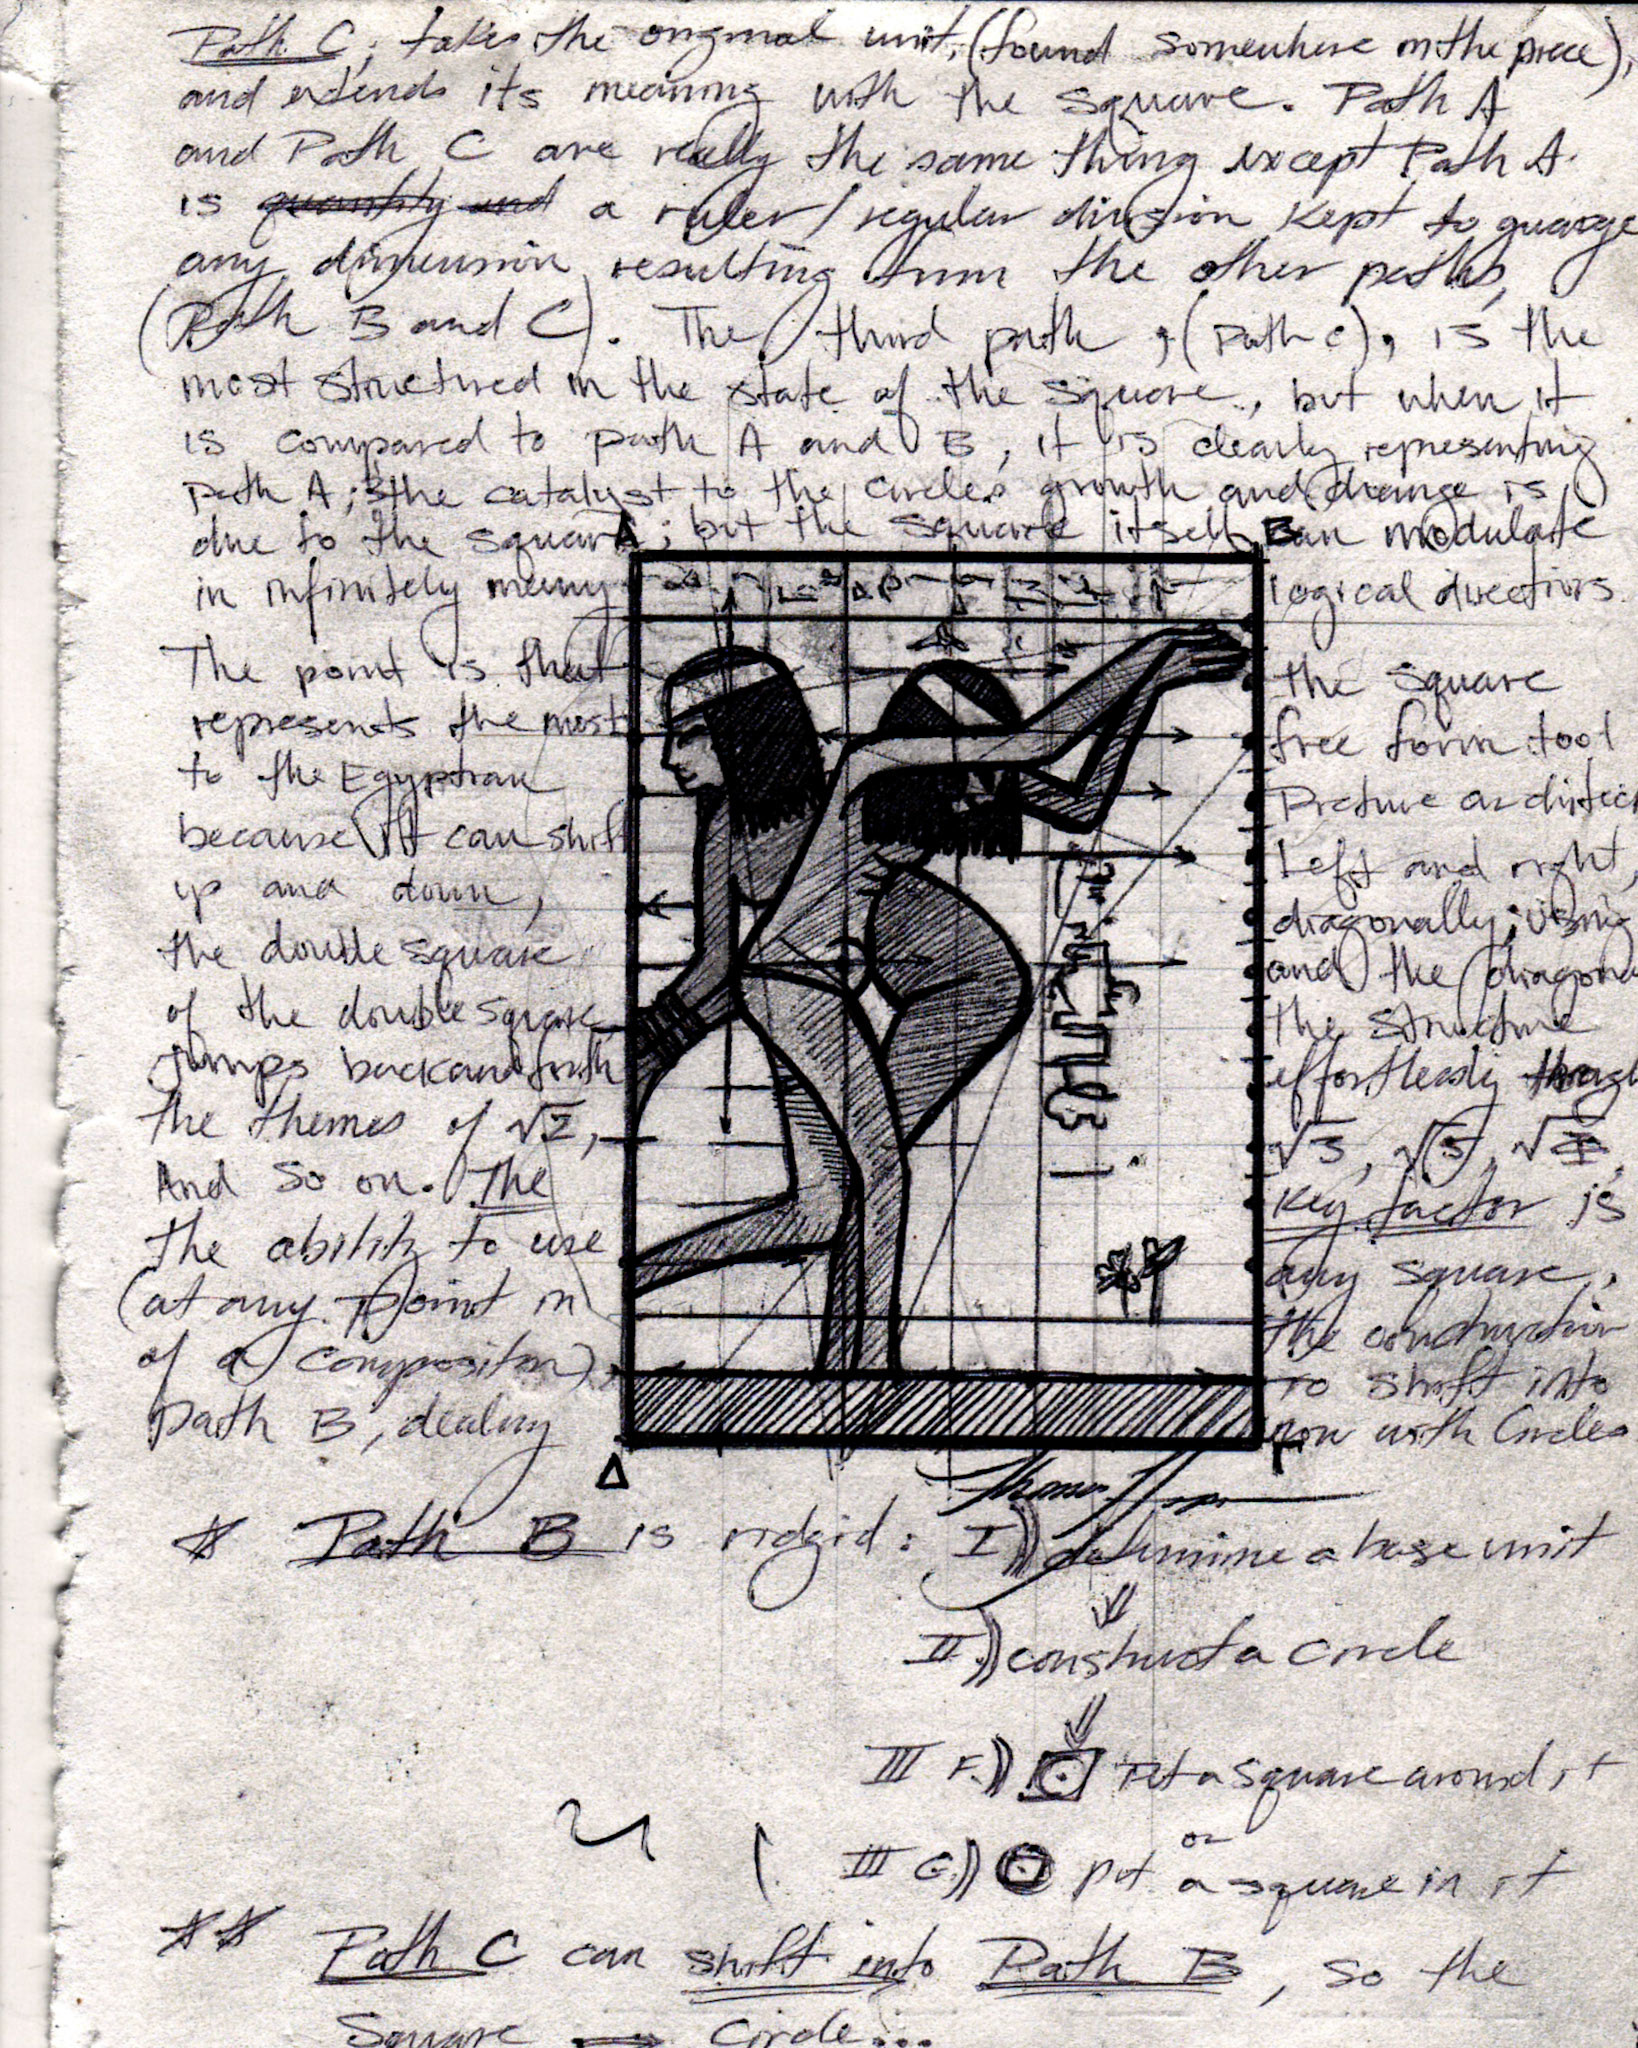 Path C; takes the original unit, (found somewhere in the piece),
and extends its meaning with the square. Path A
and Path C are really the same thing except Path A
is quantity and a ruler/regular division kept to guarge
any dimension resulting from the other paths,
(Path B and C). The third path, (path c), is the
most structured in the state of the square, but when it
is compared to path A and B, it is clearly representing
path A; the catalyst to the circles growth and change is
due to the square; but the square itself can modulate
in infinitely many logical directions.
A B
The point is that the square
represents the most free form tool
to the Egyptian Picture architect
because it can shift Left and right,
up and down, diagonally; using
the double square and the diagonal
of the double square the structure
jumps back and forth effortlessly through
the themes of √2, √3, √5,
And so on. The key factor is
the ability to use any square,
(at any point in the construction
of a composition) to shift into
Path B, dealing now with Circles
Δ Γ
Path B is ridgid: I) determine a base unit
II) construct a circle
III F.) Put a square around it
or
III G.) put a square in it
Path C can shift into Path B, so the
Square → Circle...